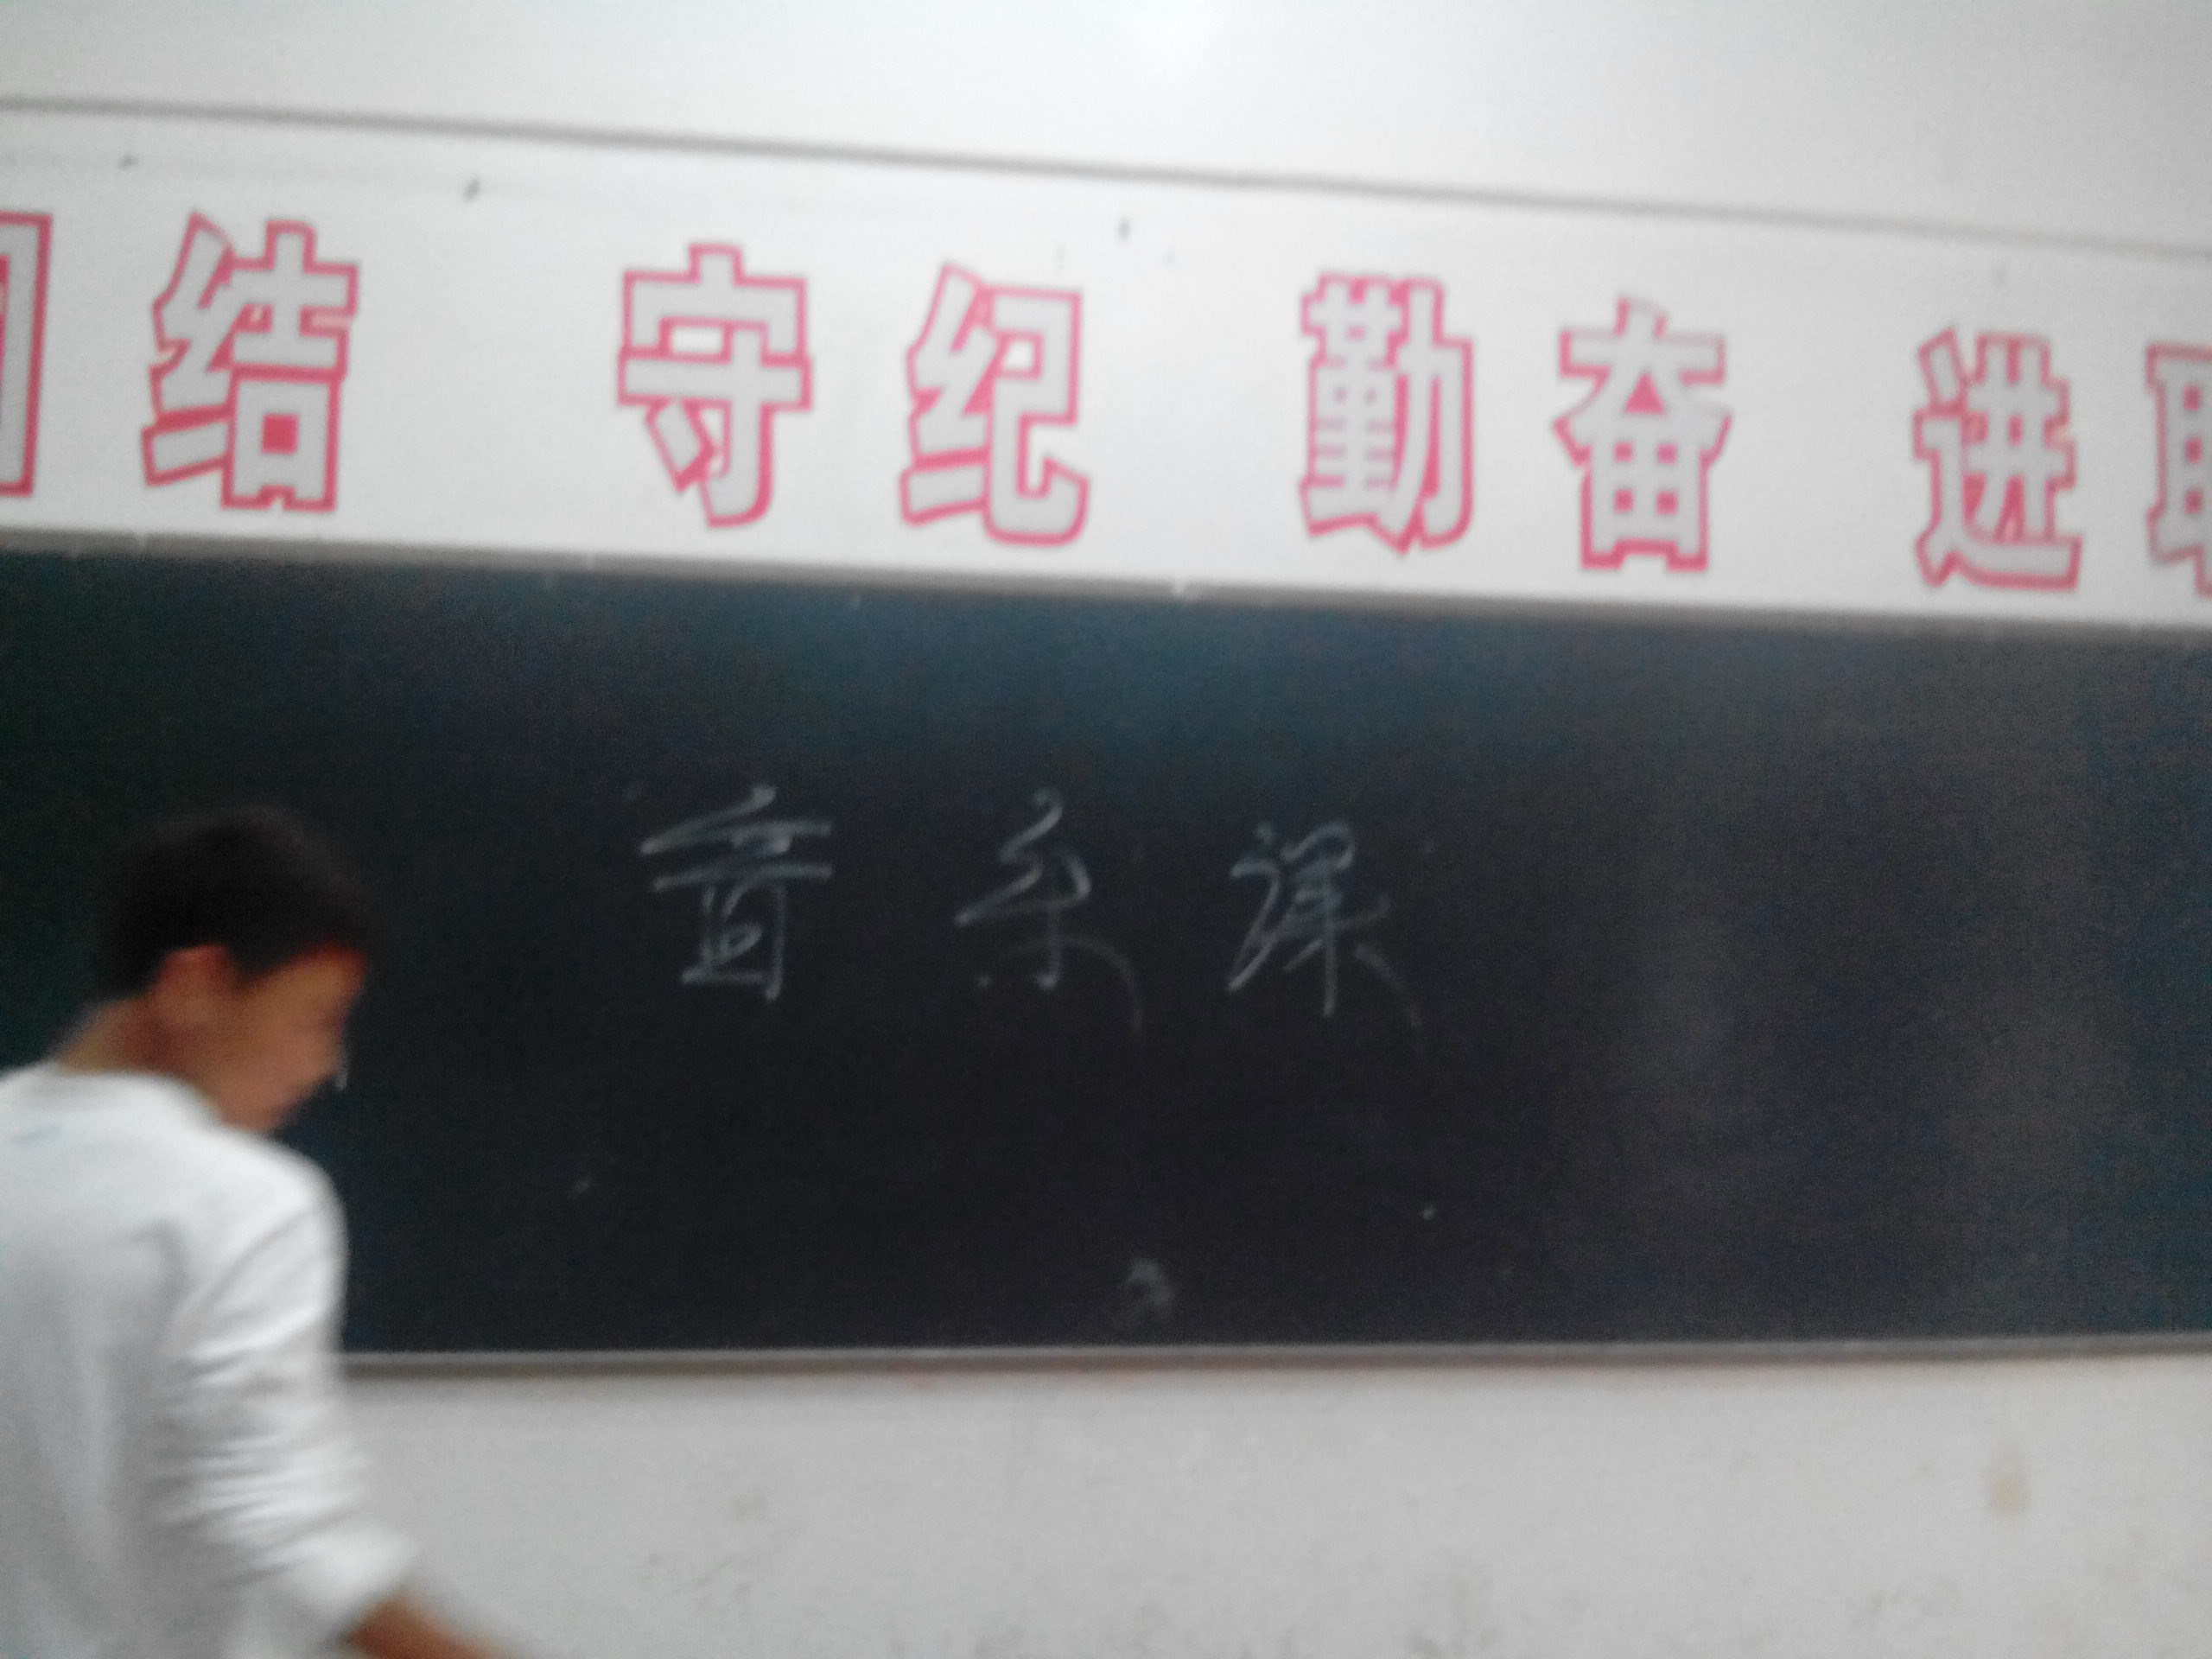 团结 守纪 勤奋 进取
音乐课